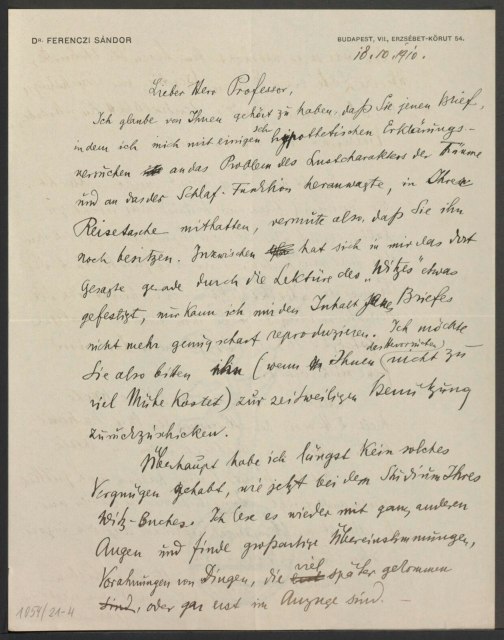 Dr. FERENCZI SÁNDOR
BUDAPEST, VII., ERZSÉBET-KÖRUT 54.
18.10.1910.
Lieber Herr Professor,
Ich glaube von Ihnen gehört zu haben, daß Sie jenen Brief,
indem ich mich mit einigen sehr hypothetischen Erklärungs-
versuchen an das Problem des Lustcharakters der Träume
und an das der Schlaf-Funktion heranwagte, in Ihrer
Reisetasche mithatten, vermute also, daß Sie ihn
noch besitzen. Inzwischen hat sich in mir das dort
Gesagte gerade durch die Lektüre des „Witzes" etwas
gefestigt, nur kann ich mir den Inhalt jenes Briefes
nicht mehr genug scharf reproduzieren. Ich möchte
Sie also bitten ihn (wenn Ihnen das Hervorsuchen nicht zu
viel Mühe kostet) zur zeitweiligen Benützung
zurückzuschicken.
Überhaupt habe ich längst kein solches
Vergnügen gehabt, wie jetzt bei dem Studium Ihres
Witz-Buches. Ich lese es wieder mit ganz anderen
Augen und finde großartige Übereinstimmungen,
Vorahnungen von Dingen, die viel später gekommen
sind, oder gar erst im Anzuge sind. —
1054/21-4